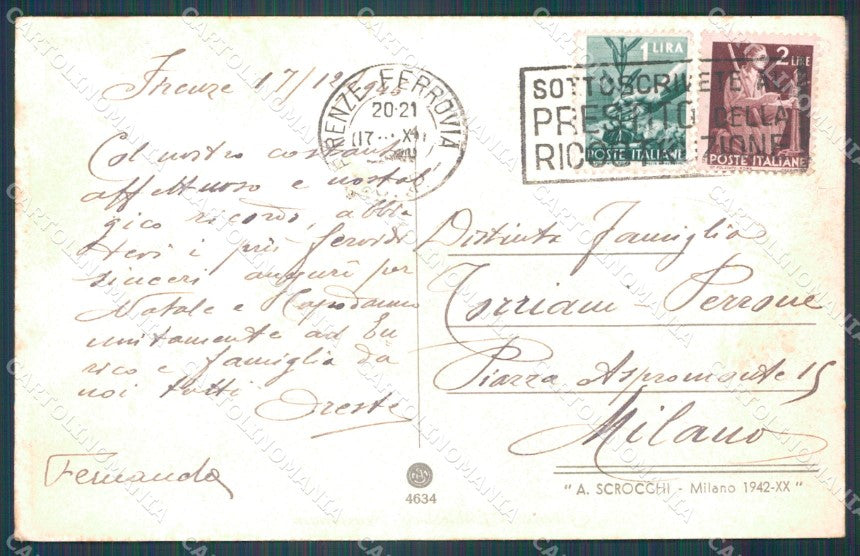 Firenze 17/12 945
Col nostro costante
affettuoso e nostal
gico ricordo, abbia
tevi i più fervidi
sinceri auguri per
Natale e Capodanno
unitamente ad En
rico e famiglia da
noi tutti
Oreste
Fernanda
FIRENZE FERROVIA
20-21
1 LIRA
POSTE ITALIANE
2 LIRE
POSTE ITALIANE
SOTTOSCRIVETE AL
PRESTITO DELLA
Distinta Famiglia
Torriani - Perrone
Piazza Aspromonte 15
Milano
4634
" A. SCROCCHI - Milano 1942-XX "
CARTOLINOMANIA